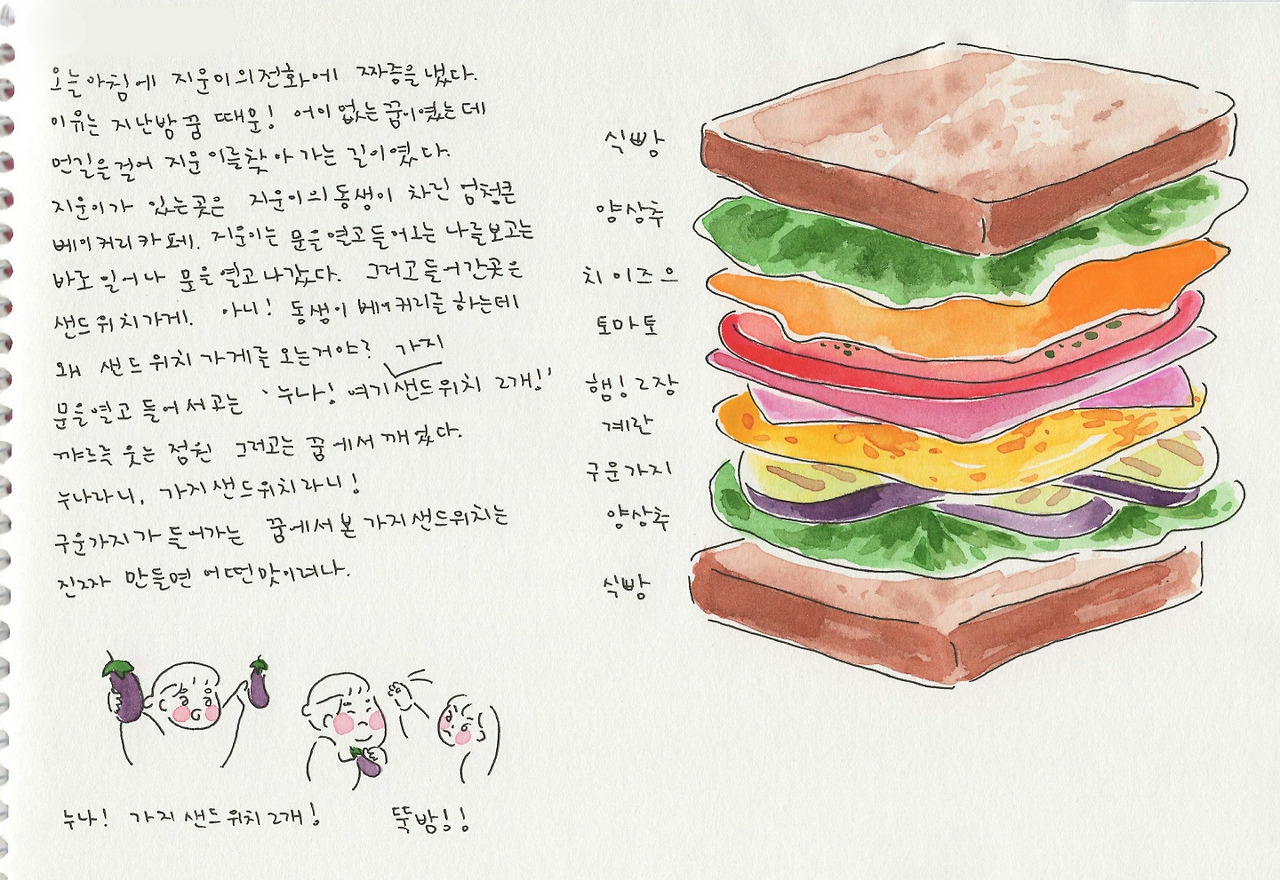 오늘아침에 지운이의전화에 짜증을 냈다.
이유는 지난밤 꿈 때문! 어이 없는 꿈이였는데
먼길을걸어 지운이를찾아 가는 길이였다.
지운이가 있는곳은 지운이의 동생이 차린 엄청큰
베이커리카페. 지운이는 문을 열고 들어오는 나를보고는
바로 일어나 문을 열고 나갔다. 그러고 들어간곳은
샌드위치가게. 아니! 동생이 베이커리를 하는데
왜 샌드위치 가게를 오는거야?
가지
문을열고 들어서고는 '누나! 여기샌드위치 2개!'
꺄르륵 웃는 정원 그러고는 꿈에서 깨였다.
누나라니, 가지샌드위치라니!
구운가지가 들어가는 꿈에서 본 가지샌드위치는
진짜 만들면 어떤맛이려나.
누나! 가지 샌드위치 2개!
뚝밤!!
식빵
양상추
치이즈으
토마토
햄! 2장
계란
구운가지
양상추
식빵